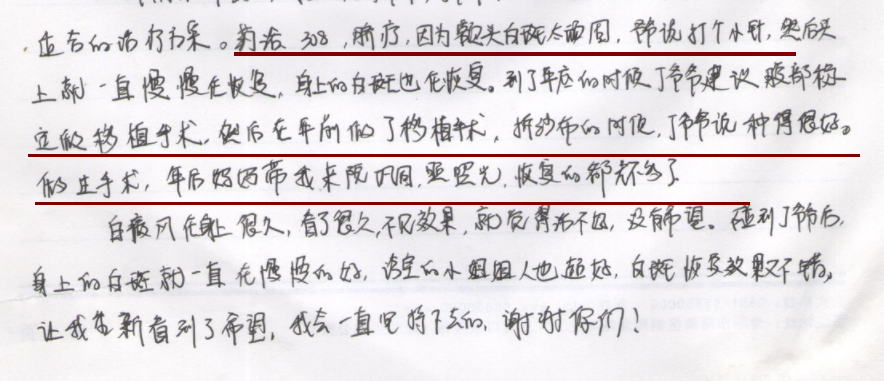 适合的治疗方案。药浴、308、脐疗,因为额头白斑太顽固,爷说打个小针,然后头
上就一直慢慢在恢复,身上的白斑也在恢复。到了年底的时候丁爷爷建议腹部稳
定做移植手术。然后在年前做了移植手术,拆纱布的时候,丁爷爷说种得很好。
做过手术,年后妈妈带我来院巩固,照照光,恢复的都差不多了
白癜风在身上很久,看了很久,不见效果,就觉得治不好,没有希望。碰到丁爷后,
身上的白斑就一直在慢慢的好,诊室的小姐姐人也超好,白斑恢复效果又不错,
让我重新看到了希望,我会一直坚持下去的,谢谢你们!